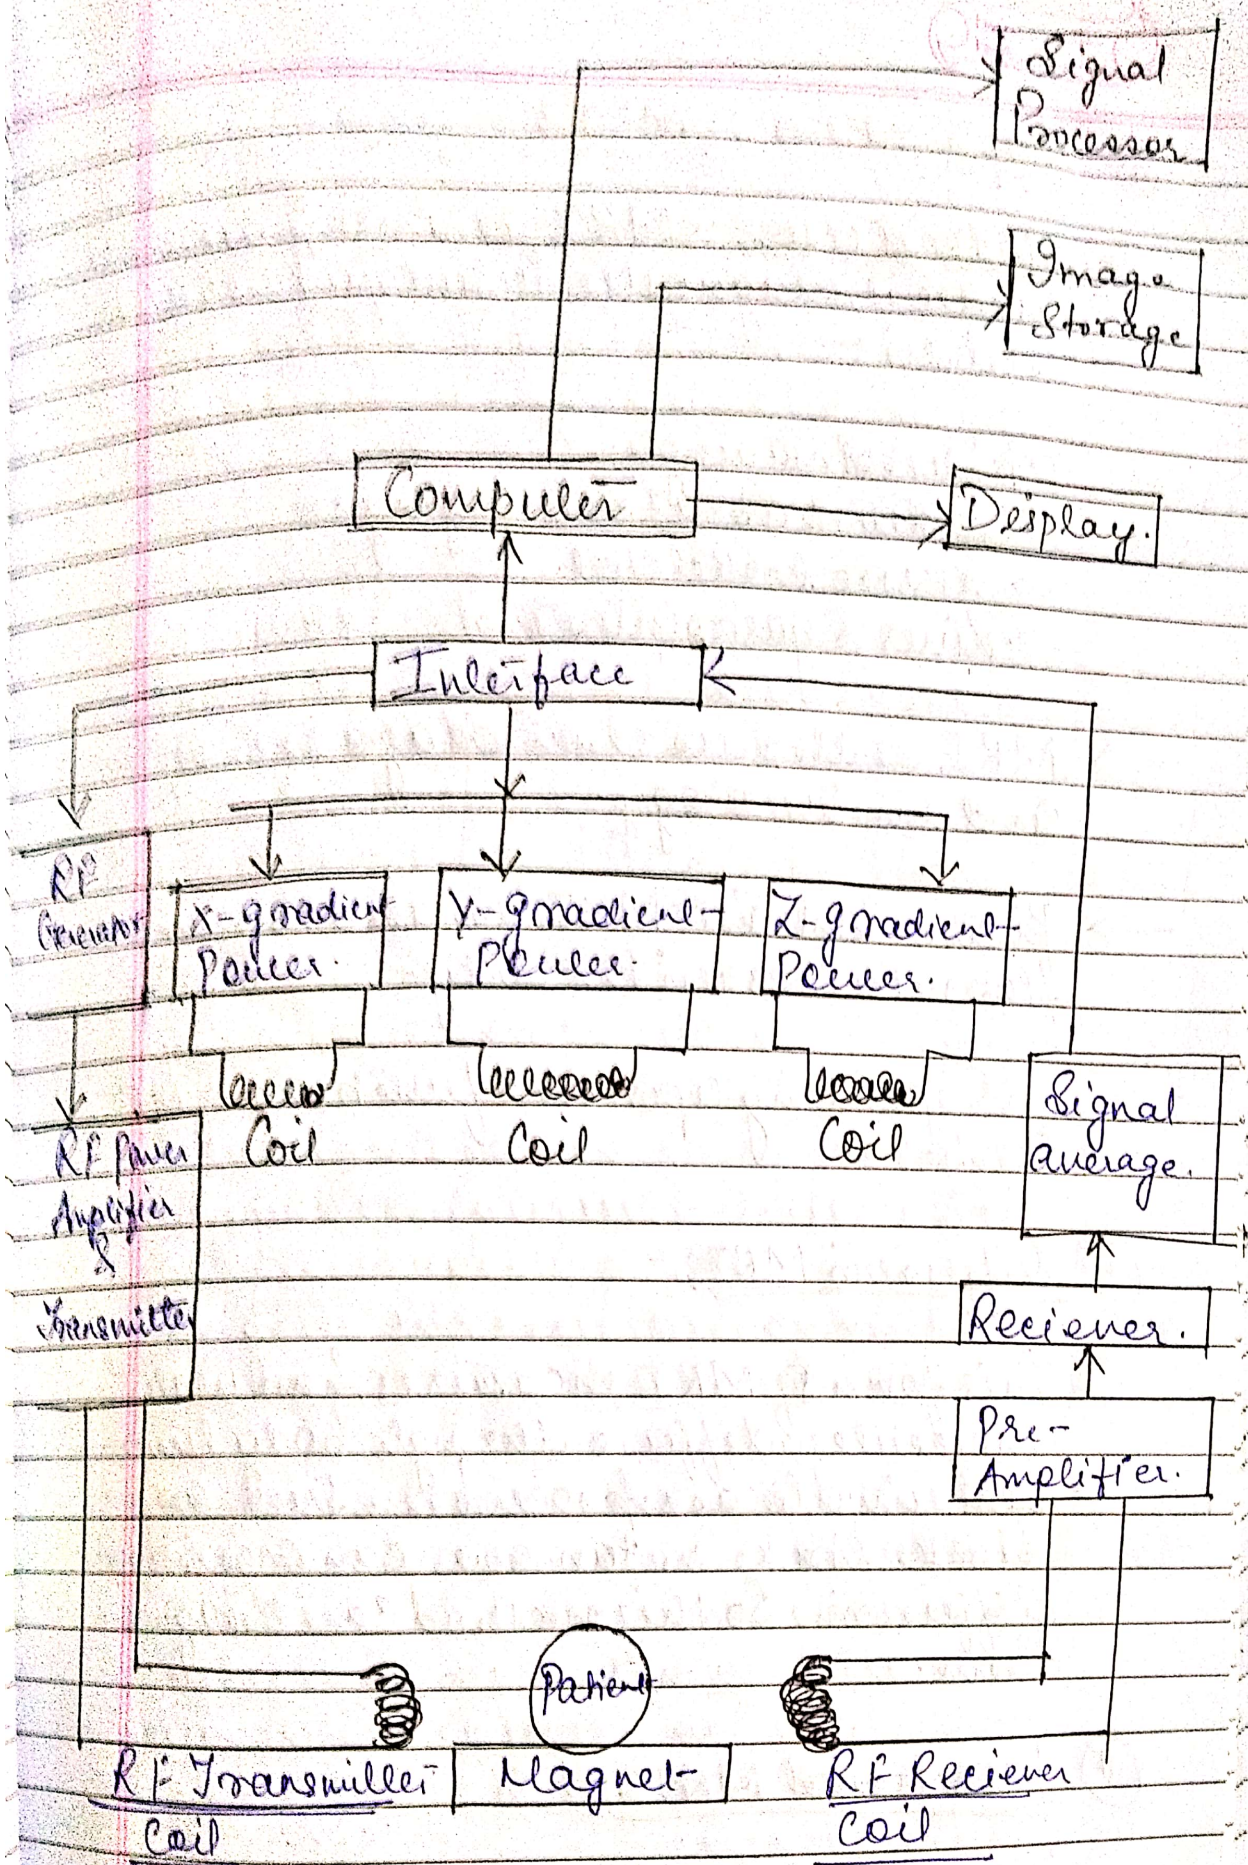 Signal
Processor
Image
Storage
Computer
Display.
Interface
RF
Generator
X-gradient
Power.
Y-gradient
Power.
Z-gradient
Power.
Coil
Coil
Coil
Signal
average.
RF Power
Amplifier
&
Transmitter
Reciever.
Pre-
Amplifier.
Patient
RF Transmitter
Coil
Magnet
RF Reciever
Coil